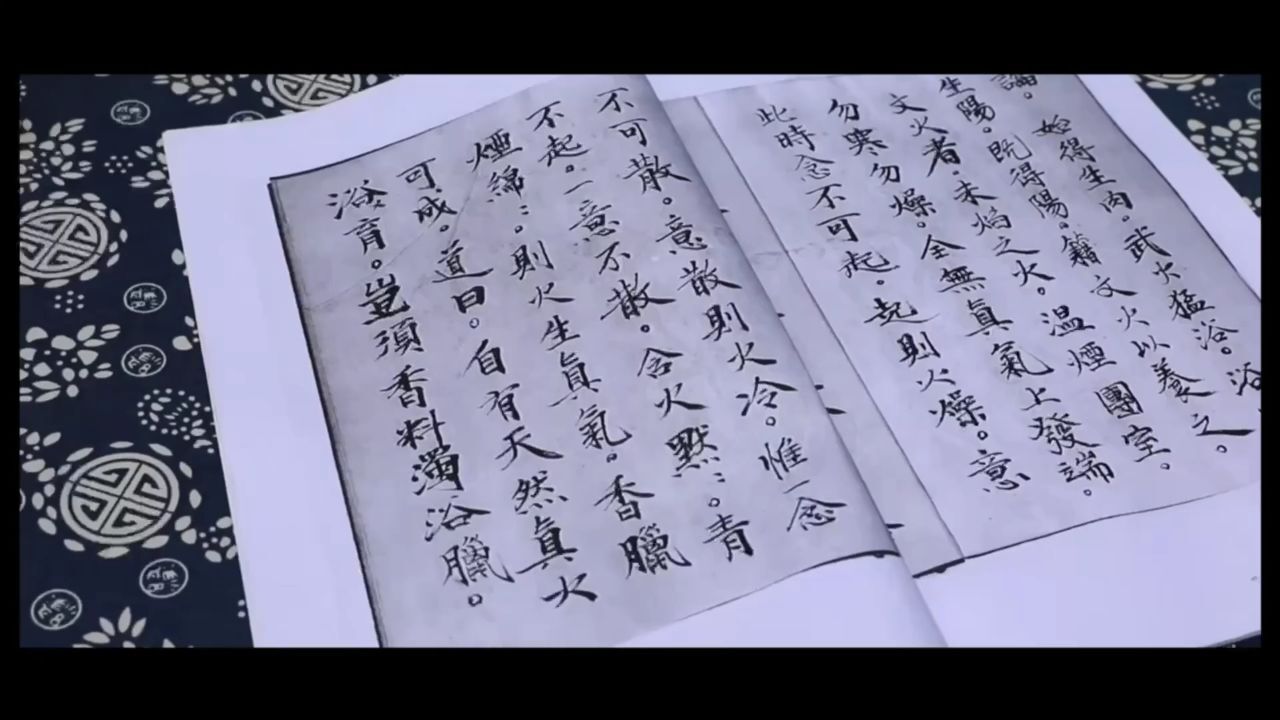 論。始得生肉。武火猛浴。浴
生陽。既得陽。籍文火以養之。
文火者。未焰之火。温煙團室。
勿寒勿燥。全無真氣上發端。
此時念不可起。起則火燥。意
不可散。意散則火冷。惟一念
不起。一意不散。含火默〻。青
煙綿〻則火生真氣。香臘
可成。道曰。自有天然真火
浴育。豈須香料濁浴臘。